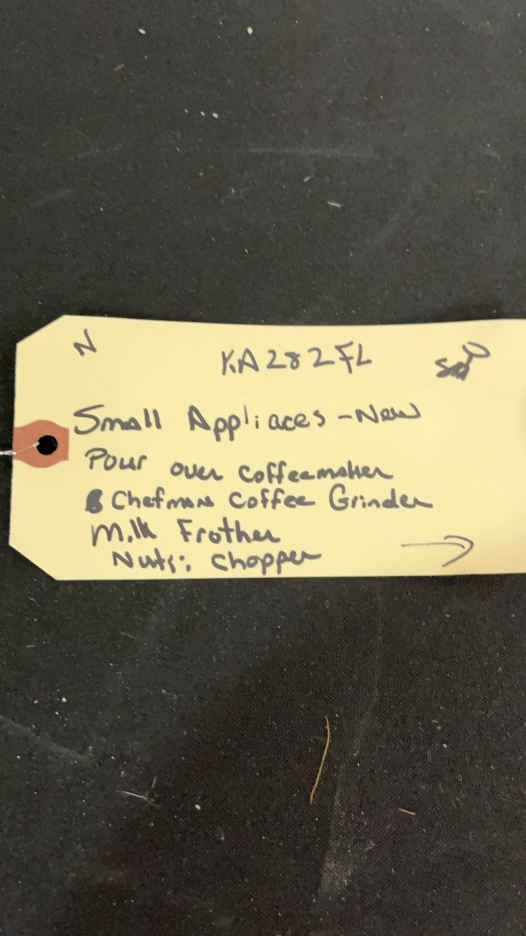 N
KA282FL
Small Appliaces - New
Pour over Coffeemaker
Chefman Coffee Grinder
Milk Frother
Chopper